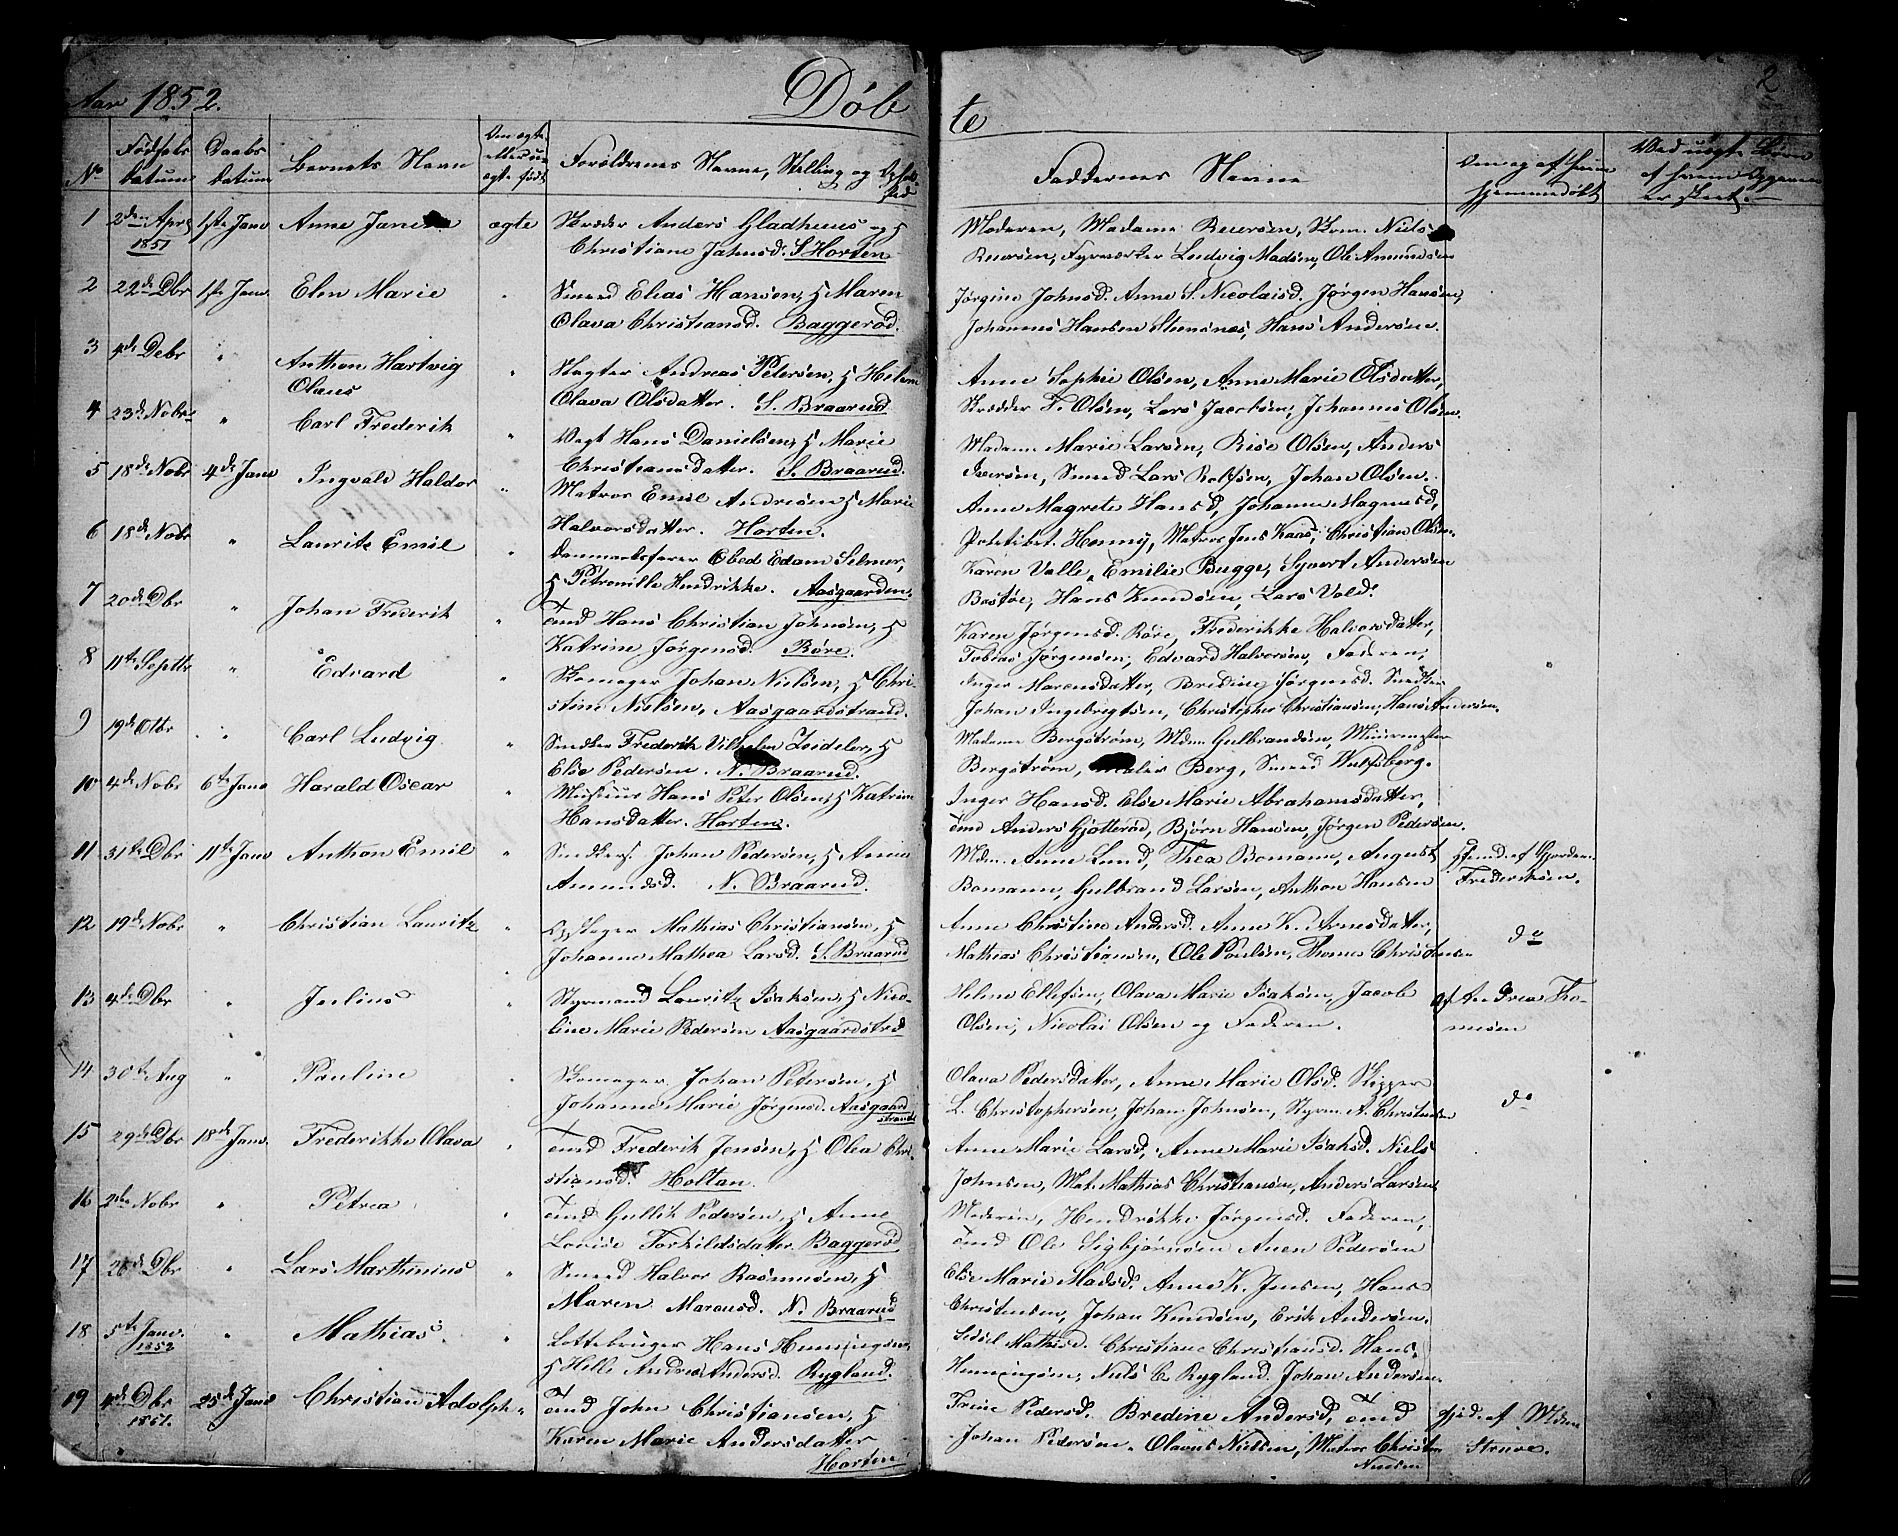 Aar 1852.
Døb
te
2
No
Fødsels Datum
Daabs Datum
Barnets Navn
Om ægte eller uægte født
Forældrenes Navne, Stilling og Opholdssted
Faddernes Navne
Om og af hvem hjemmedøbt
Ved uægte Børn af hvem Opgaven er skeet.
1 2den April 1851 1ste Janv Anne Janette ægte Skræder Anders Gladhuus og H
Christiane Jahnsd. S. Horten
Moderen, Madame Reiersen, Skom. Niels
Reiersen, Fyrverker Ludvig Madsen, Ole Amundsen
2 22de Dbr 1ste Janv. Elen Marie " Smed Elias Hansen, H Maren
Olava Christiansd. Baggerød.
Jørgine Johnsd. Anne S. Nicolaisd. Jørgen Hansen,
Johannes Hansen Steensnæs, Hans Andersen.
3 4de Debr " Anthon Hartvig
Olaus
" Slagter Andreas Petersen, H Helene
Olava Olsdatter. S. Braarud
Anne Sophie Olsen, Anne Marie Olsdatter,
Skrædder T. Olsen, Lars Jacobsen, Johannes Olsen.
4 23de Nobr " Carl Frederik " Vægt Hans Danielsen, H Marie
Christiansdatter. S. Braarud.
Madam Marie Larsen, Elise Olsen, Anders
Iversen, Smed Lars Rolfsen, Johan Olsen.
5 18de Nobr 4de Janv Ingvald Haldor " Matros Emil Andresen, H Marie
Halvorsdatter. Horten.
Anne Magrete Hansd, Johanne Magnusd,
Politibet. Henny, Matros Jens Kaas, Christian Olsen.
6 18de Nobr " Lauritz Emil " Danmarksfarer Obed Edam Selmer,
H Petronille Hendrikke. Aasgaarden.
Karen Valle, Emilie Bugge, Syvert Andersen
Bastøe, Hans Knudsen, Lars Vold.
7 20de Dbr " Johan Frederik " Tmd Hans Christian Johnsen, H
Katrine Jørgensd. Røre.
Karen Jørgensd. Røre, Frederikke Halvorsdatter,
Tobias Jørgensen, Edvard Halvorsen, Faderen,
8 11te Septbr " Edvard " Skomager Johan Nielsen, H Chri-
stine Nielsen, Aasgaardstrand.
Inger Marensdatter, Bredine Jørgensd. Snedker
Johan Ingebrigtsen, Christopher Christiansen, Hans Andersen.
9 19de Otbr " Carl Ludvig " Snedker Frederik Vilhelm Zeideler, H
Else Pedersen. N. Braarud.
Madame Bergstrøm, Mdm Gulbrandsen, Muurmester
Bergstrøm, Maler Berg, Smed Wulfsberg.
10 4de Nobr 6te Janv Harald Oscar " Musseur Hans Peter Olsen, H Katrine
Hansdatter. Horten.
Inger Hansd. Else Marie Abrahamsdatter,
Tmd Anders Gjøtterød, Bjørn Hansen, Jørgen Pedersen.
11 31te Dbr 11te Janv Anthon Emil " Snedkers. Johan Pedersen, H Anne
Amundsd. N. Braarud.
Mdm. Anne Lund, Thea Bomann, August
Bomann, Gulbrand Larsen, Anthon Hansen
Hjemd. af Gjordem.
Frederiksen.
12 19de Nobr " Christian Lauritz " Opslager Mathias Christiansen, H
Johanne Mathea Larsd. S. Braarud
Anne Christine Andersd. Anne K. Arnesdatter,
Mathias Christiansen, Ole Poulsen, Thomas Christensen
do
13 4de Dbr " Julius " Styrmand Lauritz Isaksen, H Nico-
line Marie Pedersen Aasgaardstrd
Helene Ellefsen, Olava Marie Isaksen, Jacob
Olsen, Nicolai Olsen og Faderen.
af Andrea Tho-
mesen
14 30te Aug " Pauline " Skomager Johan Petersen, H
Johanne Marie Jørgensd. Aasgaard
strand
Olava Pedersdatter, Anne Marie Olsd. Skipper
L. Christophersen, Johan Johnsen, Styrm. A. Christensen
do
15 29de Dbr 18de Janv. Frederikke Olava " Tmd Frederik Jensen, H Olea Chri-
stiansd. Holtan.
Anne Marie Larsd, Anne Marie Isaksd. Niels
Johnsen, Mat. Mathias Christiansen, Anders Larsen
16 2den Nobr " Petrea " Tmd Gullik Pedersen, H Anne
Lovise Torkildsdatter Baggerød
Moderen, Hendrikke Jørgensd. Faderen,
Tmd Ole Sigbjørnsen Auen Pedersen
17 26de Dbr " Lars Marthinius " Smed Halvor Rasmusen, H
Maren Marensd. N. Braarud
Else Marie Madsd. Anne K. Jensen, Hans
Christensen, Johan Knudsen, Erik Andersen.
18 5te Janv. 1852 " Mathias. " Lottebruger Hans Henningsen,
H Helle Andrea Andersd. Rygland.
Sidsel Mathisd. Christiane Christiansd. Hans.
Henningsen, Niels C. Rygland. Johan Andersen.
19 4de Dbr 1851. 25de Janv Christian Adolph " Tmd John Christiansen, H
Karen Marie Andersdatter
Horten
Trine Pedersd. Bredine Andersd, Tmd
Johan Pedersen. Olavus Nielsen, Matros Christen
Nielsen
Hjd. af Mdm
Struve.